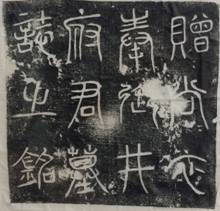 贈尚衣
奉御井
府君墓
誌之銘